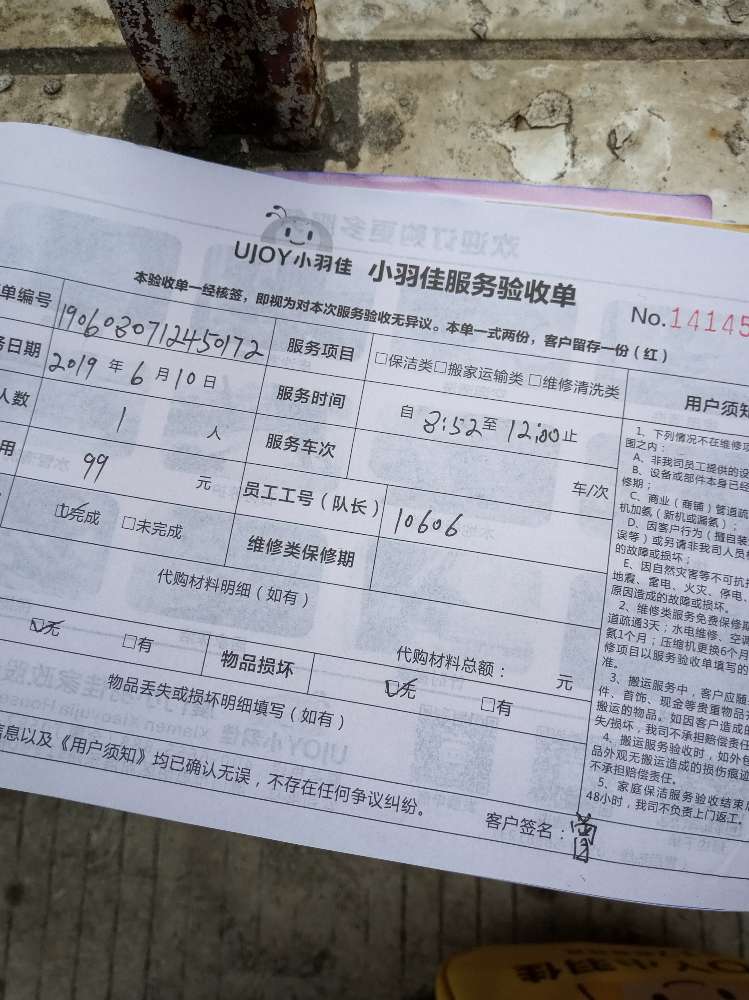 欢迎订购更多服
UJOY小羽佳 小羽佳服务验收单
本验收单一经核签，即视为对本次服务验收无异议。本单一式两份，客户留存一份（红）
No.14145
单编号 1906030712450172 服务项目 □保洁类□搬家运输类□维修清洗类
务日期 2019年6月10日 服务时间 自 8:52 至 12:00 止
人数 1 人 服务车次 车/次
用 99 元 员工工号（队长） 10606
☑完成 □未完成 维修类保修期
代购材料明细（如有）
代购材料总额： 元
☑无 □有 物品损坏 ☑无 □有
物品丢失或损坏明细填写（如有）
信息以及《用户须知》均已确认无误，不存在任何争议纠纷。
客户签名：曾
用户须知
1、下列情况不在维修项
围之内：
A、非我司员工提供的设
B、设备或部件本身已经
修期；
C、商业（商铺）管道疏
机加氨（新机或漏氨）；
D、因客户行为（擅自装
误等）或另请非我司人员
的故障或损坏；
E、因自然灾害等不可抗
地震、雷电、火灾、停电、
原因造成的故障或损坏。
2、维修类服务免费保修期
道疏通3天；水电维修、空调
氨1个月；压缩机更换6个月
修项目以服务验收单填写的
准。
3、搬运服务中，客户应随
件、首饰、现金等贵重物品
搬运的物品。如因客户造成的
失/损坏，我司不承担赔偿责任
4、搬运服务验收时，如外包
品外观无搬运造成的损伤痕迹
不承担赔偿责任。
5、家庭保洁服务验收结束后
48小时，我司不负责上门返工。
UJOY小羽佳